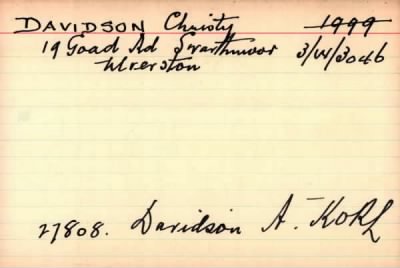 DAVIDSON Christy 1999
19 Goad Rd Swarthmoor 3/W/3046
Ulverston
27808. Davidson A. KORL